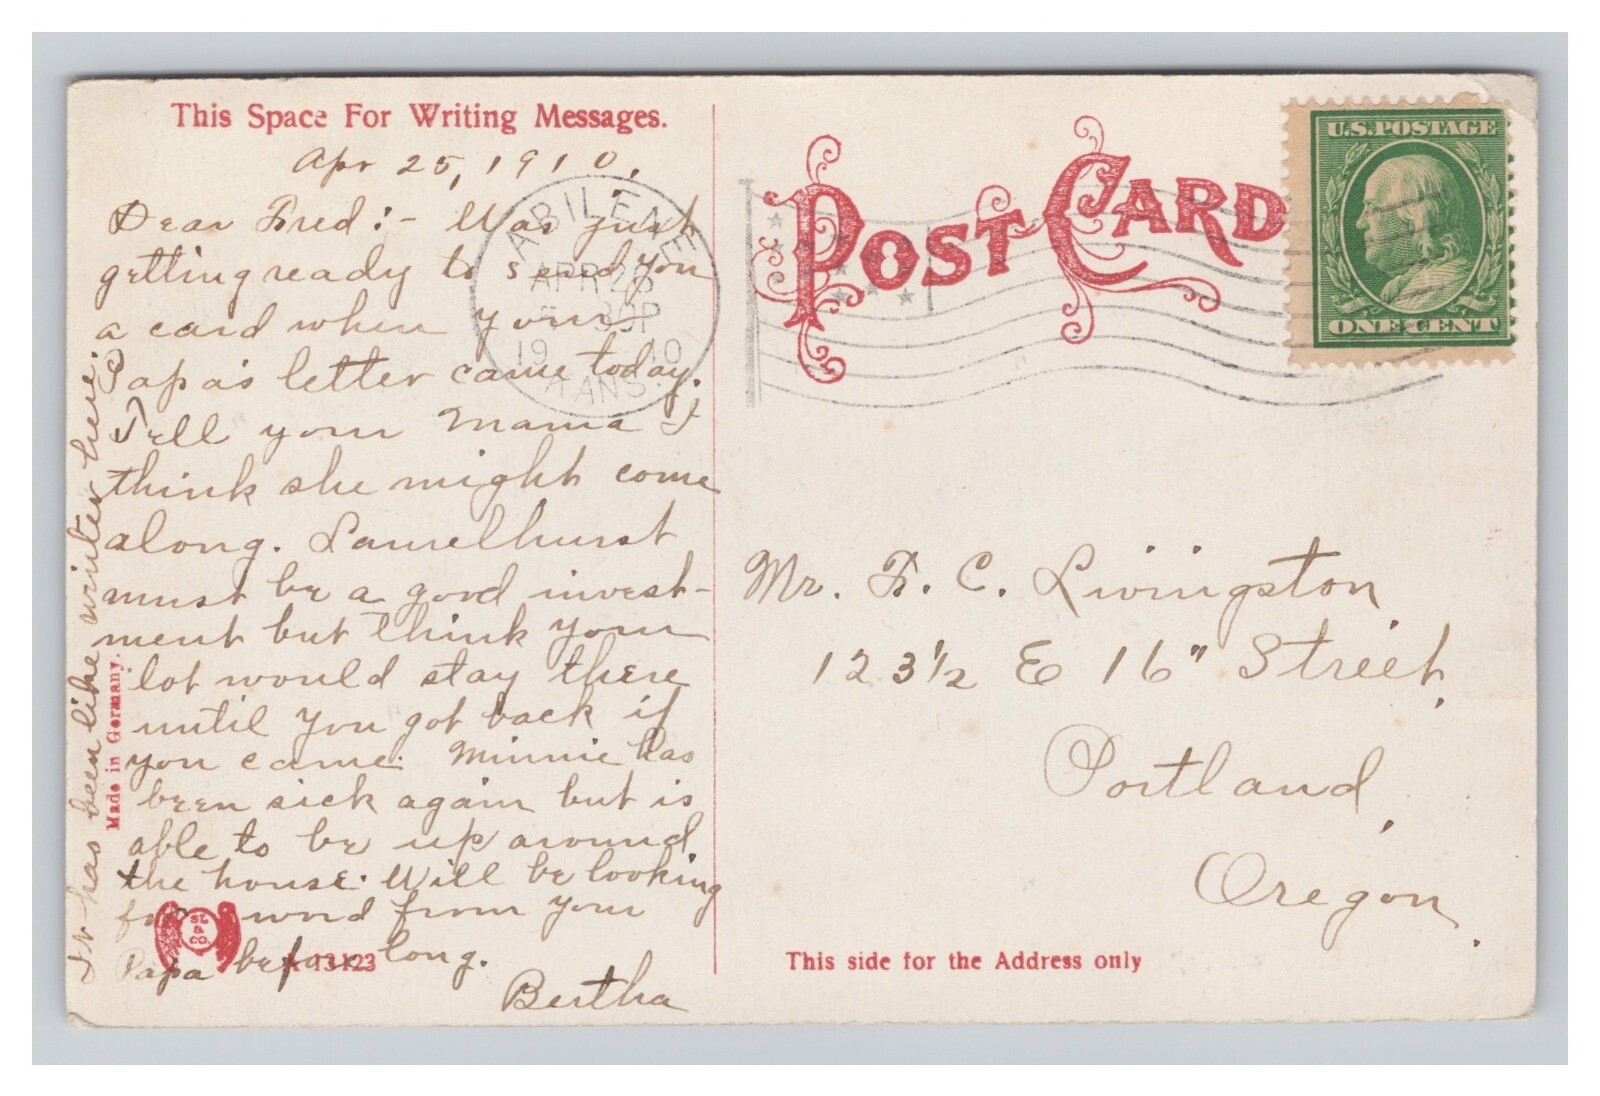 This Space For Writing Messages.
Apr 25, 1910.
Dear Fred:- Was just
getting ready to send you
a card when your
Papa's letter came today.
Tell your Mama I
think she might come
along. Laurelhurst
must be a good invest-
ment but I think your
lot would stay there
until you got back if
you came. Minnie has
been sick again but is
able to be up around
the house. Will be looking
for word from your
Papa before long.
Bertha
It has been like winter here.
Made in Germany.
SL & CO.
A 13423
ABILENE
APR 25
30P
19 10
KANS.
POST CARD
U.S. POSTAGE
ONE CENT
Mr. F. C. Livingston
123½ E 16" Street,
Portland,
Oregon.
This side for the Address only